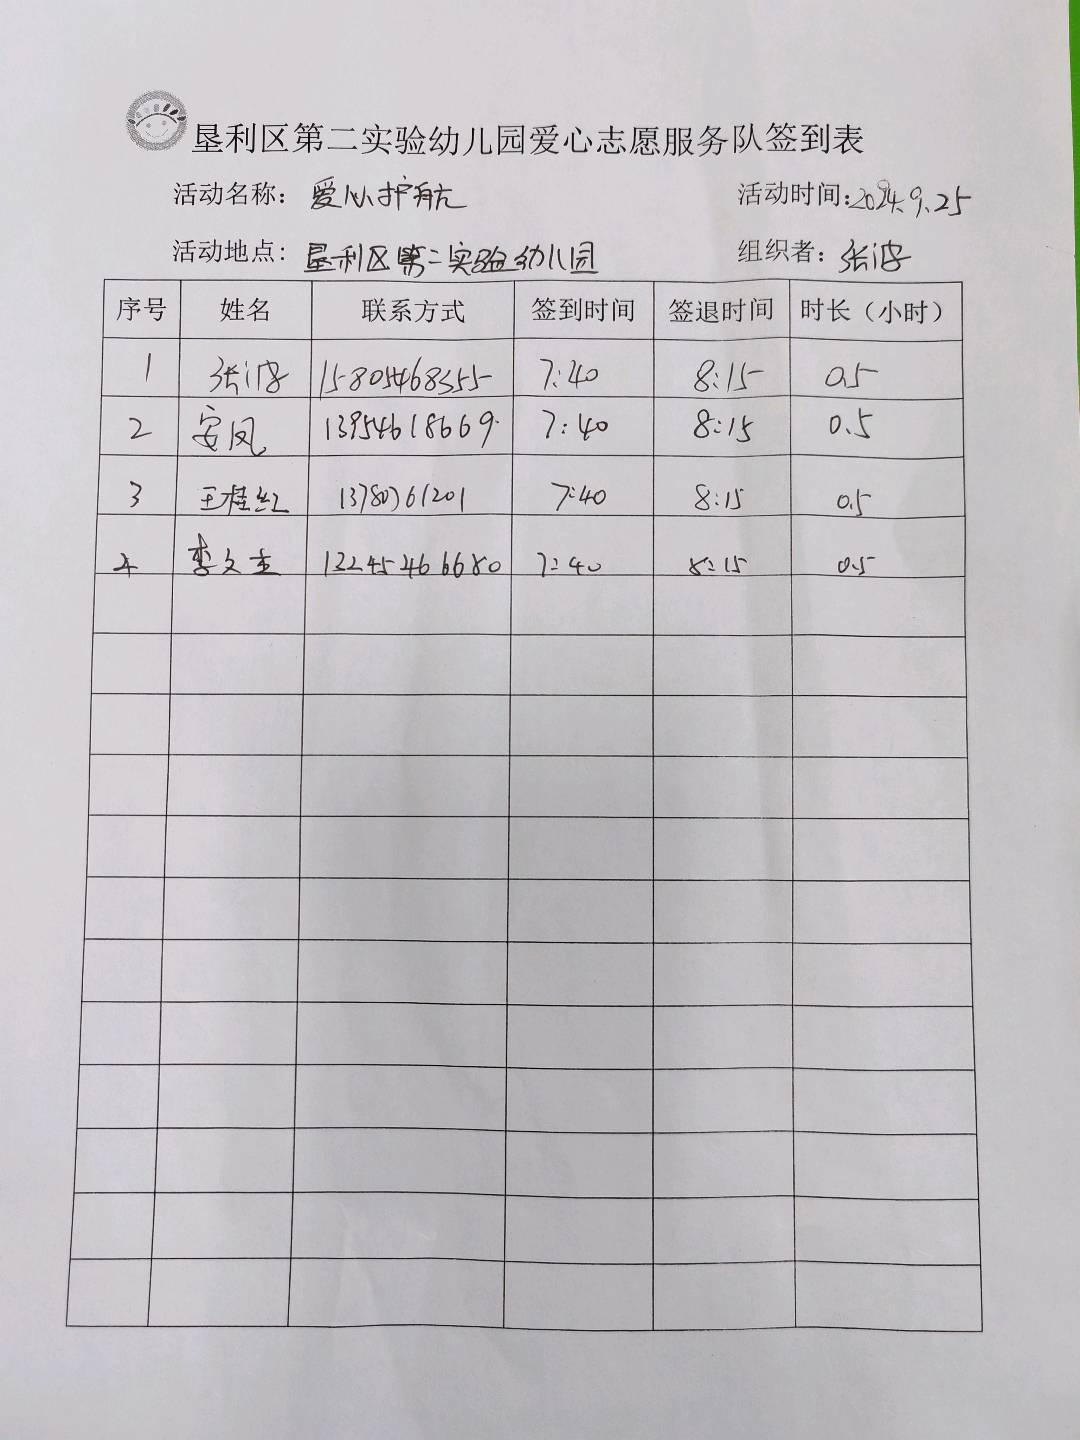 垦利区第二实验幼儿园爱心志愿服务队签到表
活动名称：爱心护航 活动时间：2024.9.25
活动地点：垦利区第二实验幼儿园 组织者：张波
序号 姓名 联系方式 签到时间 签退时间 时长（小时）
1 张波 15805468355 7:40 8:15 0.5
2 安凤 13954618669 7:40 8:15 0.5
3 王桂红 13780761201 7:40 8:15 0.5
4 李文 13245466680 7:40 8:15 0.5